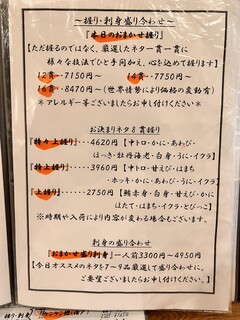 ～握り・刺身盛り合わせ～
『本日のおまかせ握り』
【ただ握るのではなく、厳選したネタ一貫一貫に
様々な技法でひと手間加え、心を込めて握ります】
12貫…7150円～　14貫…7750円～
16貫…8470円～(世界情勢により価格の変動有)
＊アレルギー等ございましたらお申し付けください＊
お決まりネタ8貫握り
『特々上握り』…4620円【中トロ・かに・あわび・
ほっき・牡丹海老・白身・うに・イクラ】
『特上握り』…3960円【中トロ・甘えび・はまち
・ホッキ・かに・あわび・うに・イクラ】
『上握り』…2750円【鮪赤身・白身・甘えび・かに
ほたて・はまち・イクラ・とびっこ】
※時期や入荷により内容が変わる場合もございます。
刺身の盛り合わせ
『おまかせ盛り刺身』一人前3300円～4950円
【今日オススメのネタを7～9品厳選して盛り合わせに。
ご要望ございましたらお申し付けください】